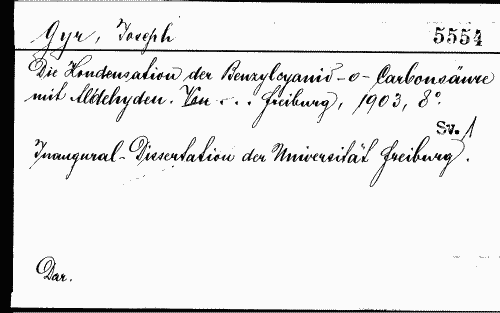 Gyr, Joseph 5554
Die Kondensation der Benzylcyanid-o-Carbonsäure
mit Aldehyden. Von . . . Freiburg, 1903, 8°.
Sv. 1
Inaugural-Dissertation der Universität Freiburg.
Dar.